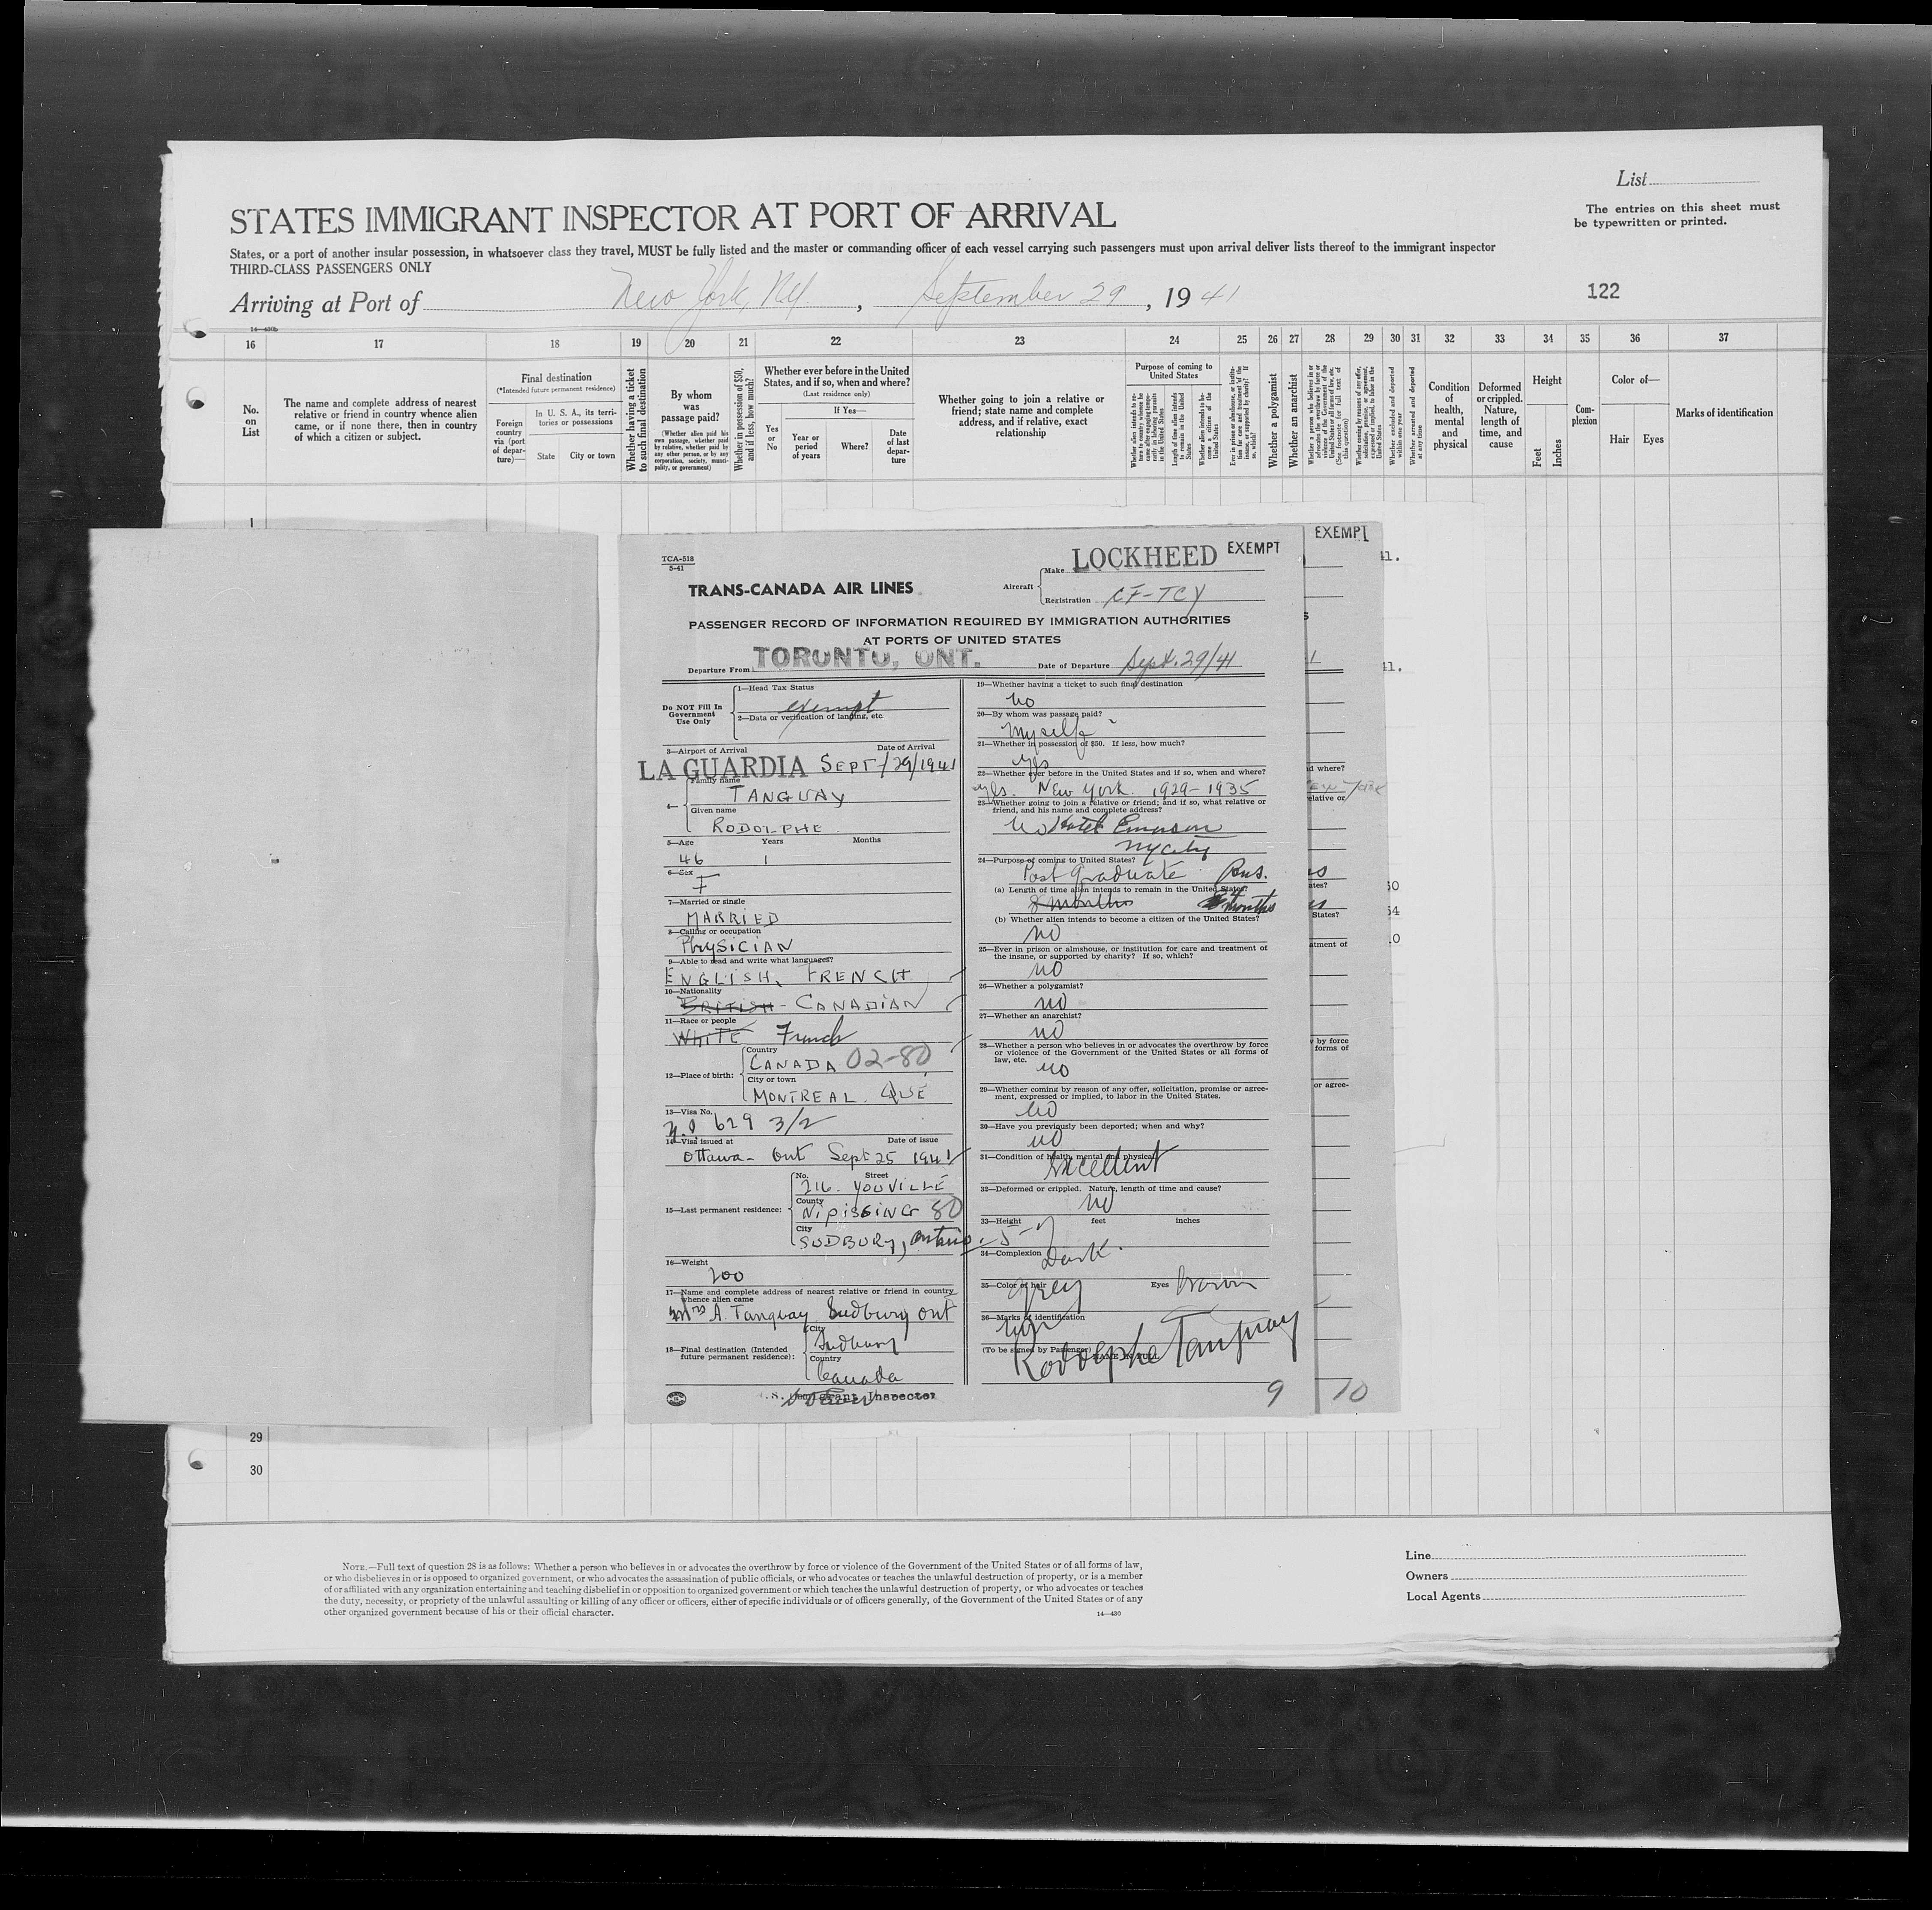 List
STATES IMMIGRANT INSPECTOR AT PORT OF ARRIVAL
The entries on this sheet must
be typewritten or printed.
States, or a port of another insular possession, in whatsoever class they travel, MUST be fully listed and the master or commanding officer of each vessel carrying such passengers must upon arrival deliver lists thereof to the immigrant inspector
THIRD-CLASS PASSENGERS ONLY
Arriving at Port of New York, NY, September 29, 1941
122
14—430b
16 17 18 19 20 21 22 23 24 25 26 27 28 29 30 31 32 33 34 35 36 37
No. on List
The name and complete address of nearest relative or friend in country whence alien came, or if none there, then in country of which a citizen or subject.
Final destination
(*Intended future permanent residence)
Foreign country via (port of departure)—
In U. S. A., its territories or possessions
State City or town
Whether having a ticket to such final destination
By whom was passage paid?
(Whether alien paid his own passage, whether paid by relative, whether paid by any other person, or by any corporation, society, municipality, or government)
Whether in possession of $50, and if less, how much?
Whether ever before in the United States, and if so, when and where?
(Last residence only)
Yes or No
If Yes—
Year or period of years
Where?
Date of last departure
Whether going to join a relative or friend; state name and complete address, and if relative, exact relationship
Purpose of coming to United States
Whether a polygamist
Whether an anarchist
Whether excluded and deported within one year
Whether arrested and deported at any time
Condition of health, mental and physical
Deformed or crippled. Nature, length of time, and cause
Height
Feet Inches
Complexion
Color of—
Hair Eyes
Marks of identification
1
TCA-518
5-41
TRANS-CANADA AIR LINES
Aircraft
Make LOCKHEED EXEMPT
Registration CF-TCY
EXEMPT
PASSENGER RECORD OF INFORMATION REQUIRED BY IMMIGRATION AUTHORITIES
AT PORTS OF UNITED STATES
Departure From TORONTO, ONT. Date of Departure Sept. 29/41
Do NOT Fill In Government Use Only
1—Head Tax Status
exempt
2—Data or verification of landing, etc.
3—Airport of Arrival Date of Arrival
LA GUARDIA SEPT/29/1941
4— Family name
TANGUAY
Given name
RODOLPHE
5—Age Years Months
46 1
6—Sex
7—Married or single
MARRIED
8—Calling or occupation
PHYSICIAN
9—Able to read and write what languages?
ENGLISH, FRENCH
10—Nationality
BRITISH - CANADIAN
11—Race or people
WHITE French
12—Place of birth:
Country
CANADA 02-80
City or town
MONTREAL. QUE
13—Visa No.
629 3/2
14—Visa issued at Date of issue
Ottawa - Ont Sept 25 1941
15—Last permanent residence:
No. Street
216. YOUVILLE
County
NIPISSING 80
City
SUDBURY, Ontario.
16—Weight
200
17—Name and complete address of nearest relative or friend in country whence alien came
Mrs A. Tanguay Sudbury Ont
18—Final destination (Intended future permanent residence):
City
Sudbury
Country
Canada
Immigrant Inspector
19—Whether having a ticket to such final destination
no
20—By whom was passage paid?
Myself
21—Whether in possession of $50. If less, how much?
yes
22—Whether ever before in the United States and if so, when and where?
yes. New York. 1929-1935
23—Whether going to join a relative or friend; and if so, what relative or friend, and his name and complete address?
No Hotel Emerson
NY City
24—Purpose of coming to United States?
Post Graduate Bus.
(a) Length of time alien intends to remain in the United States?
8 months months
(b) Whether alien intends to become a citizen of the United States?
no
25—Ever in prison or almshouse, or institution for care and treatment of the insane, or supported by charity? If so, which?
no
26—Whether a polygamist?
no
27—Whether an anarchist?
no
28—Whether a person who believes in or advocates the overthrow by force or violence of the Government of the United States or all forms of law, etc.
no
29—Whether coming by reason of any offer, solicitation, promise or agreement, expressed or implied, to labor in the United States.
no
30—Have you previously been deported; when and why?
no
31—Condition of health, mental and physical
Excellent
32—Deformed or crippled. Nature, length of time and cause?
no
33—Height feet inches
5-7
34—Complexion
Dark
35—Color of hair Eyes
Grey brown
36—Marks of identification
(To be signed by Passenger) NAME IN FULL
Rodolphe Tanguay
9
10
29
30
NOTE.—Full text of question 28 is as follows: Whether a person who believes in or advocates the overthrow by force or violence of the Government of the United States or of all forms of law,
or who disbelieves in or is opposed to organized government, or who advocates the assassination of public officials, or who advocates or teaches the unlawful destruction of property, or is a member
of or affiliated with any organization entertaining and teaching disbelief in or opposition to organized government or which teaches the unlawful destruction of property, or who advocates or teaches
the duty, necessity, or propriety of the unlawful assaulting or killing of any officer or officers, either of specific individuals or of officers generally, of the Government of the United States or of any
other organized government because of his or their official character.
14—430
Line
Owners
Local Agents